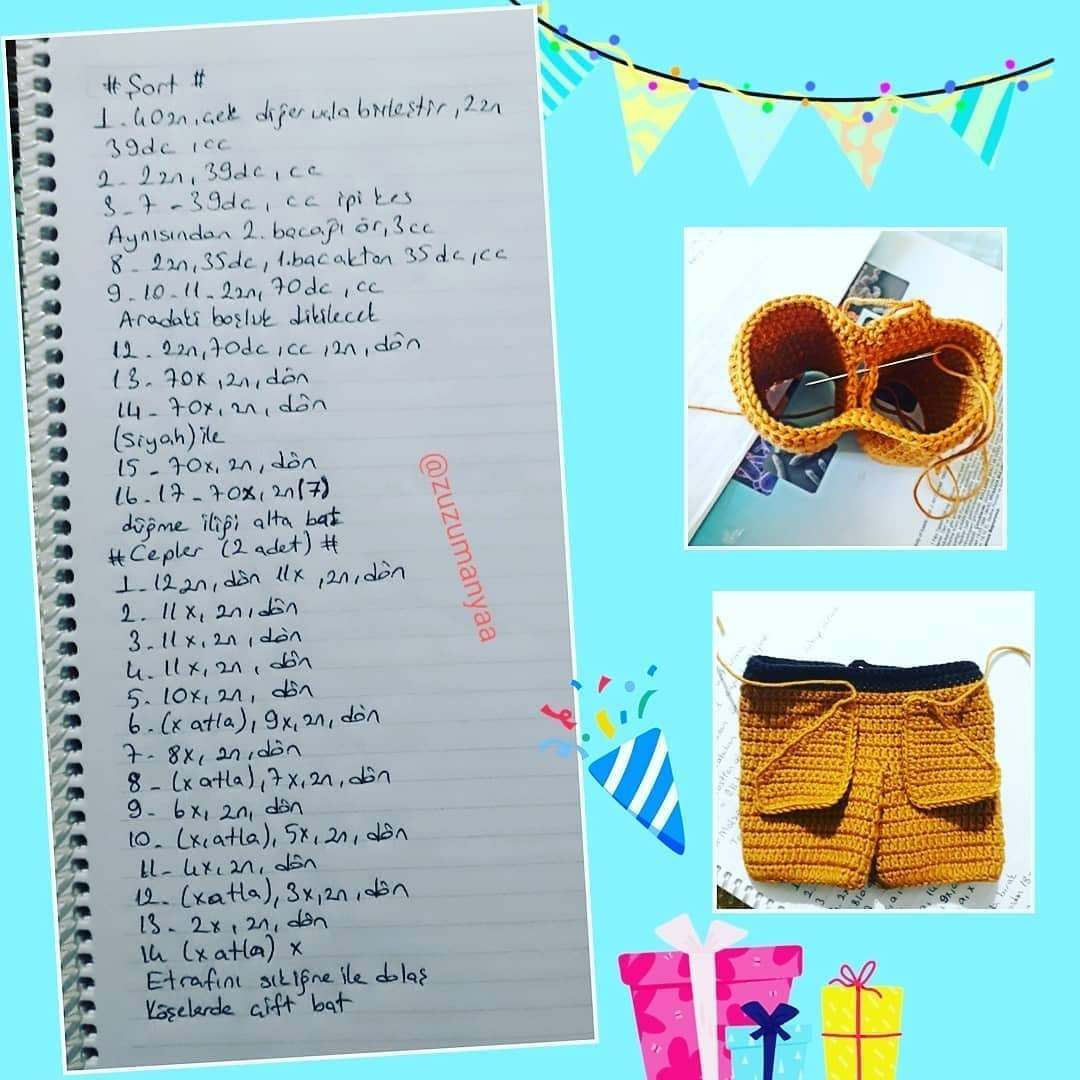 # Şort #
1. 40zn, çek diğer uçla birleştir, 2zn
39dc, cc
2- 2zn, 39dc, cc
3-7-39dc, cc ipi kes
Aynısından 2. bacağı ör, 3cc
8- 2zn, 35dc, 1.bacaktan 35dc, cc
9-10-11- 2zn, 70dc, cc
Aradaki boşluk dikilecek
12- 2zn, 70dc, cc, 1zn, dön
13- 70x, zn, dön
14- 70x, zn, dön
(Siyah) ile
15- 70x, zn, dön
16-17-70x, zn(7)
düğme iliği alta bat
# Cepler (2 adet) #
1-12zn, dön 11x, zn, dön
2. 11x, zn, dön
3-11x, zn, dön
4-11x, zn, dön
5. 10x, zn, dön
6-(x atla), 9x, zn, dön
7- 8x, zn, dön
8-(x atla), 7x, zn, dön
9- 6x, zn, dön
10-(x, atla), 5x, zn, dön
11-4x, zn, dön
12-(x atla), 3x, zn, dön
13- 2x, zn, dön
14 (x atla) x
Etrafını sık iğne ile dolaş
Köşelerde çift bat
@zuzumanyaa